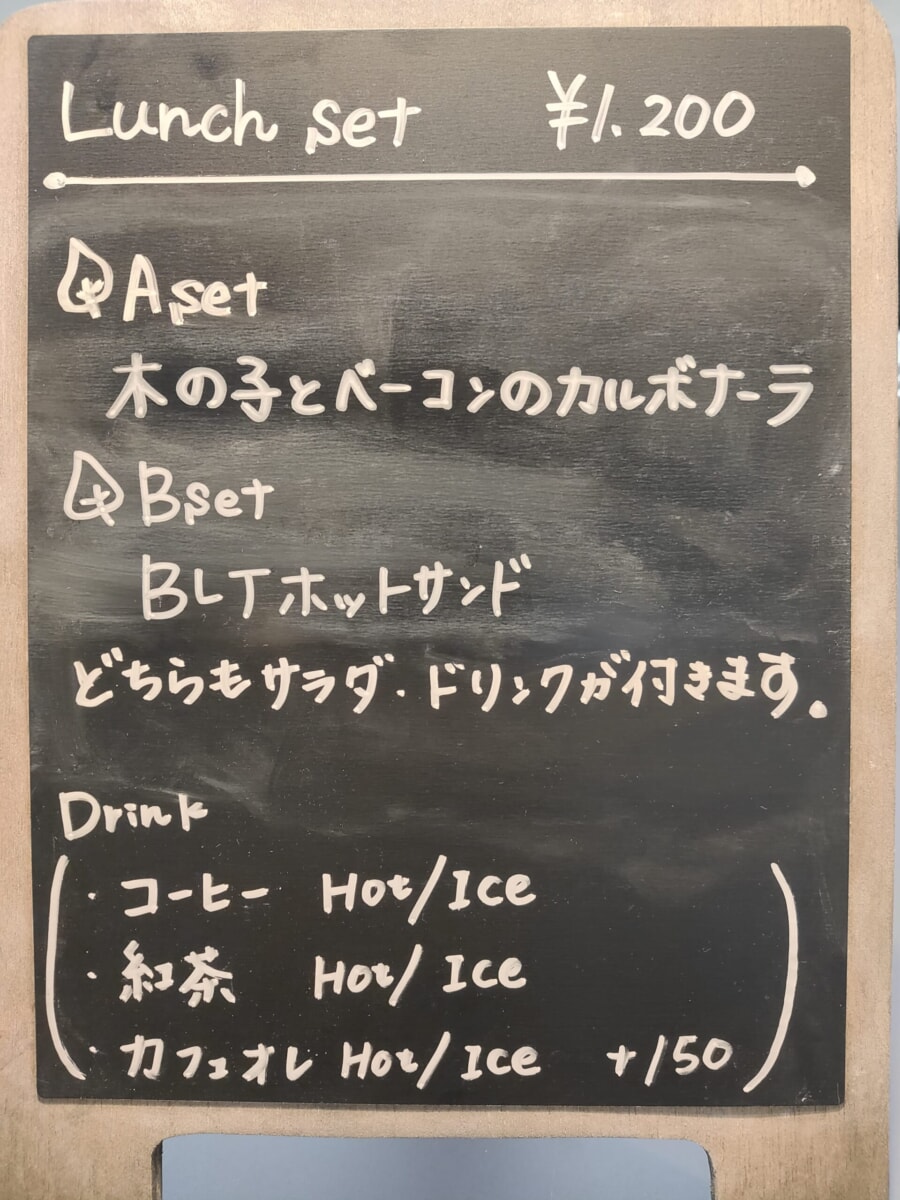 Lunch set ¥1.200
A set
木の子とベーコンのカルボナーラ
B set
BLTホットサンド
どちらもサラダ・ドリンクが付きます.
Drink
・コーヒー Hot/Ice
・紅茶 Hot/Ice
・カフェオレ Hot/Ice +150